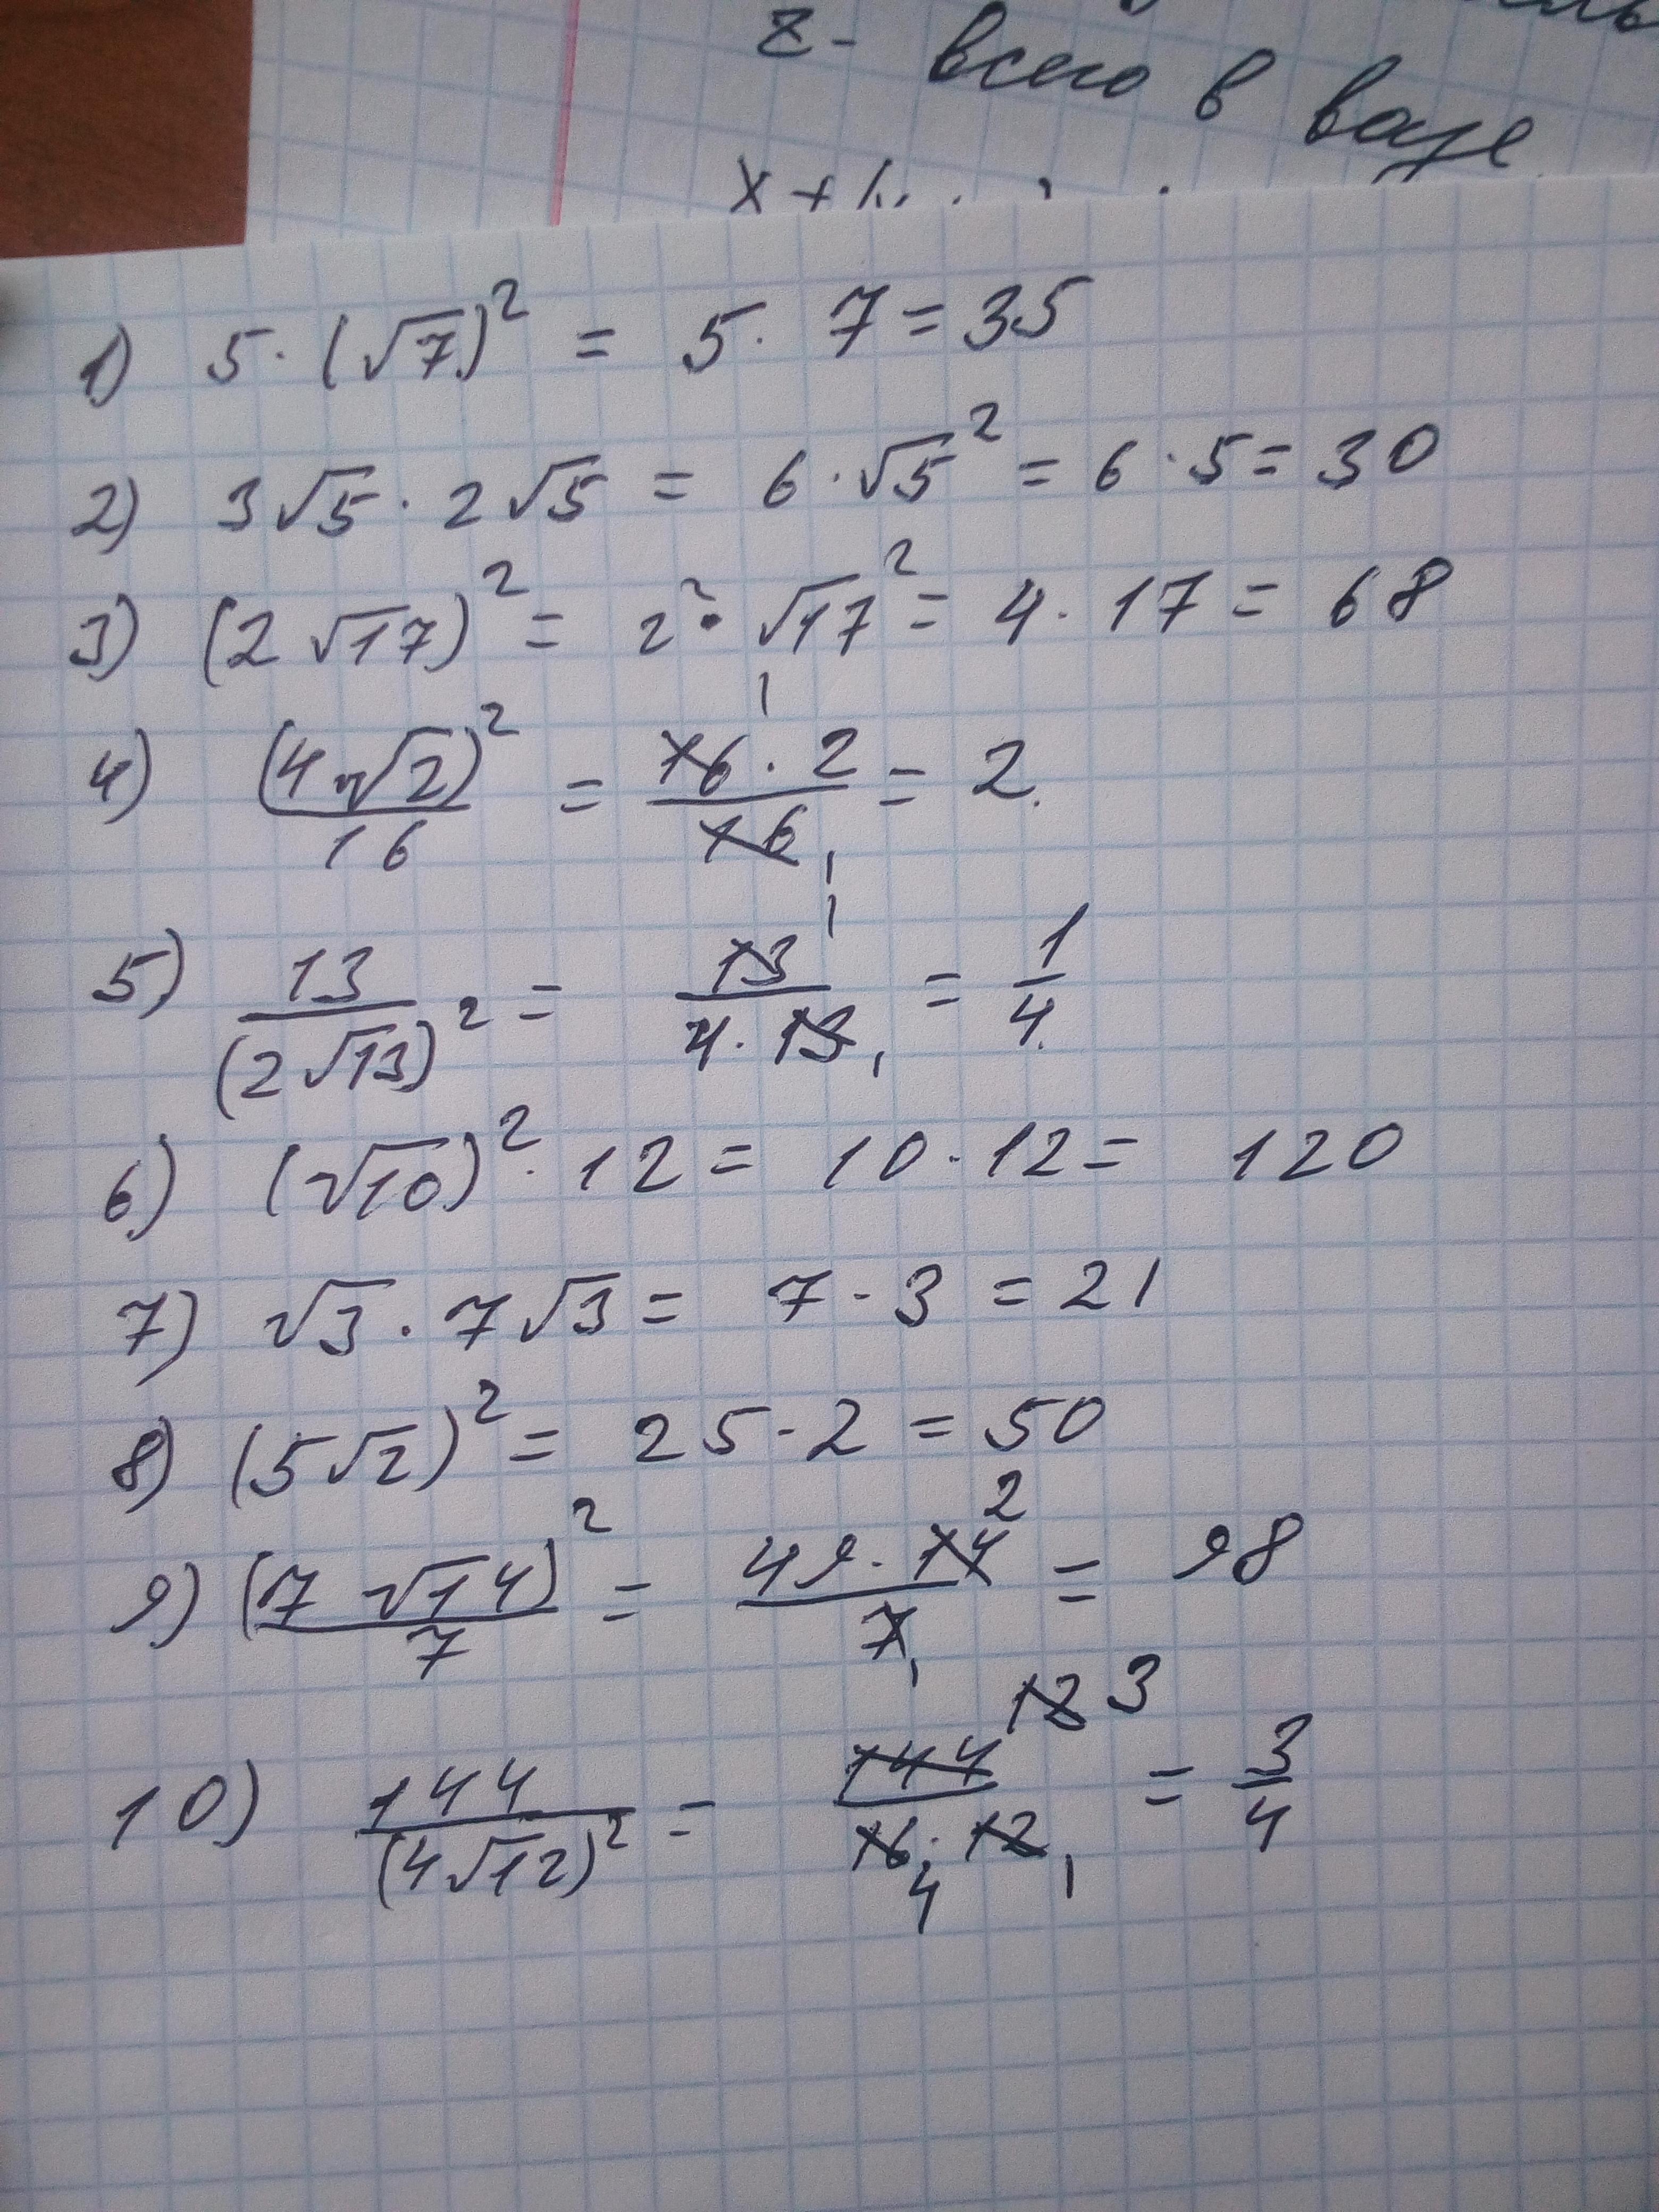 z - всего в вазе
x +
1) 5 · (√7)² = 5 · 7 = 35
2) 3√5 · 2√5 = 6 · √5² = 6 · 5 = 30
3) (2√17)² = 2² · √17² = 4 · 17 = 68
4) (4√2)² / 16 = 16 · 2 / 16 = 2
1
1
5) 13 / (2√13)² = 13 / 4 · 13 = 1/4
1
1
6) (√10)² · 12 = 10 · 12 = 120
7) √3 · 7√3 = 7 · 3 = 21
8) (5√2)² = 25 · 2 = 50
9) (7√14)² / 7 = 49 · 14 / 7 = 98
2
1
10) 144 / (4√12)² = 144 / 16 · 12 = 3/4
12 3
4 1